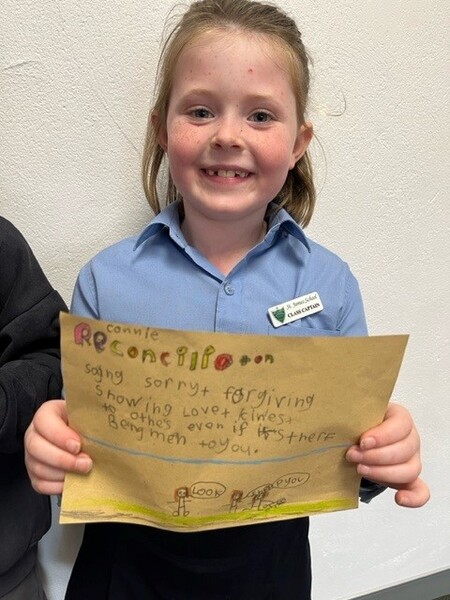 St. James School
CLASS CAPTAIN
connie
Reconcilliation
sayng sorry + forgiving
showing Love + kines +
to othes even if
Being men to you.
LOOK